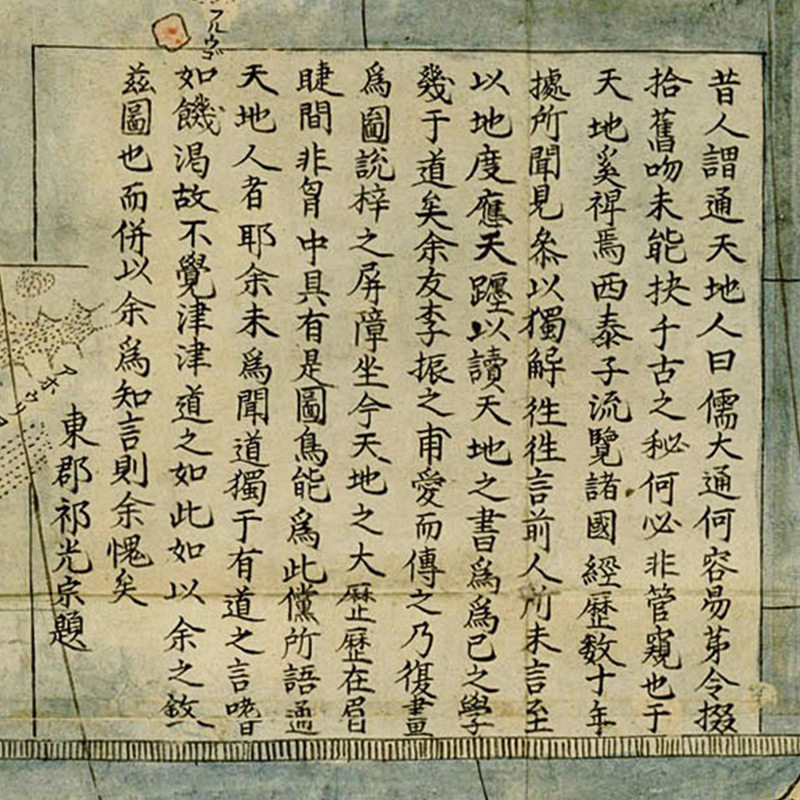 昔人謂通天地人曰儒夫通何容易苐令掇
拾舊吻未能抉千古之秘何必非管窺也于
天地奚裨焉西泰子流覽諸國經歷数十年
據所聞見叅以獨解徃徃言前人所未言至
以地度應天躔以讀天地之書爲爲己之學
幾于道矣余友李振之甫愛而傳之乃復畫
爲圖說梓之屏障坐令天地之大歷歷在眉
睫間非胷中具有是圖烏能爲此儻所語通
天地人者耶余未爲聞道獨于有道之言嗜
如饑渴故不覺津津道之如此如以余之敘
茲圖也而併以余爲知言則余愧矣
東郡祁光宗題